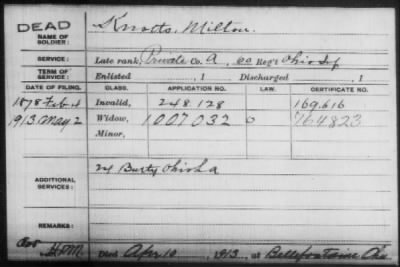 DEAD
NAME OF SOLDIER: Knotts, Milton.
SERVICE: Late rank, Private Co. A, Reg't Ohio Inf
TERM OF SERVICE: Enlisted , 1 Discharged , 1
DATE OF FILING. CLASS. APPLICATION NO. LAW. CERTIFICATE NO.
1878 Feb 4 Invalid, 248.128 169.616
1913 May 2 Widow, 1007032 0 764823
Minor,
ADDITIONAL SERVICES: 24 Batty Ohio L a
REMARKS:
Died Apr 10, 1913, at Bellefontaine